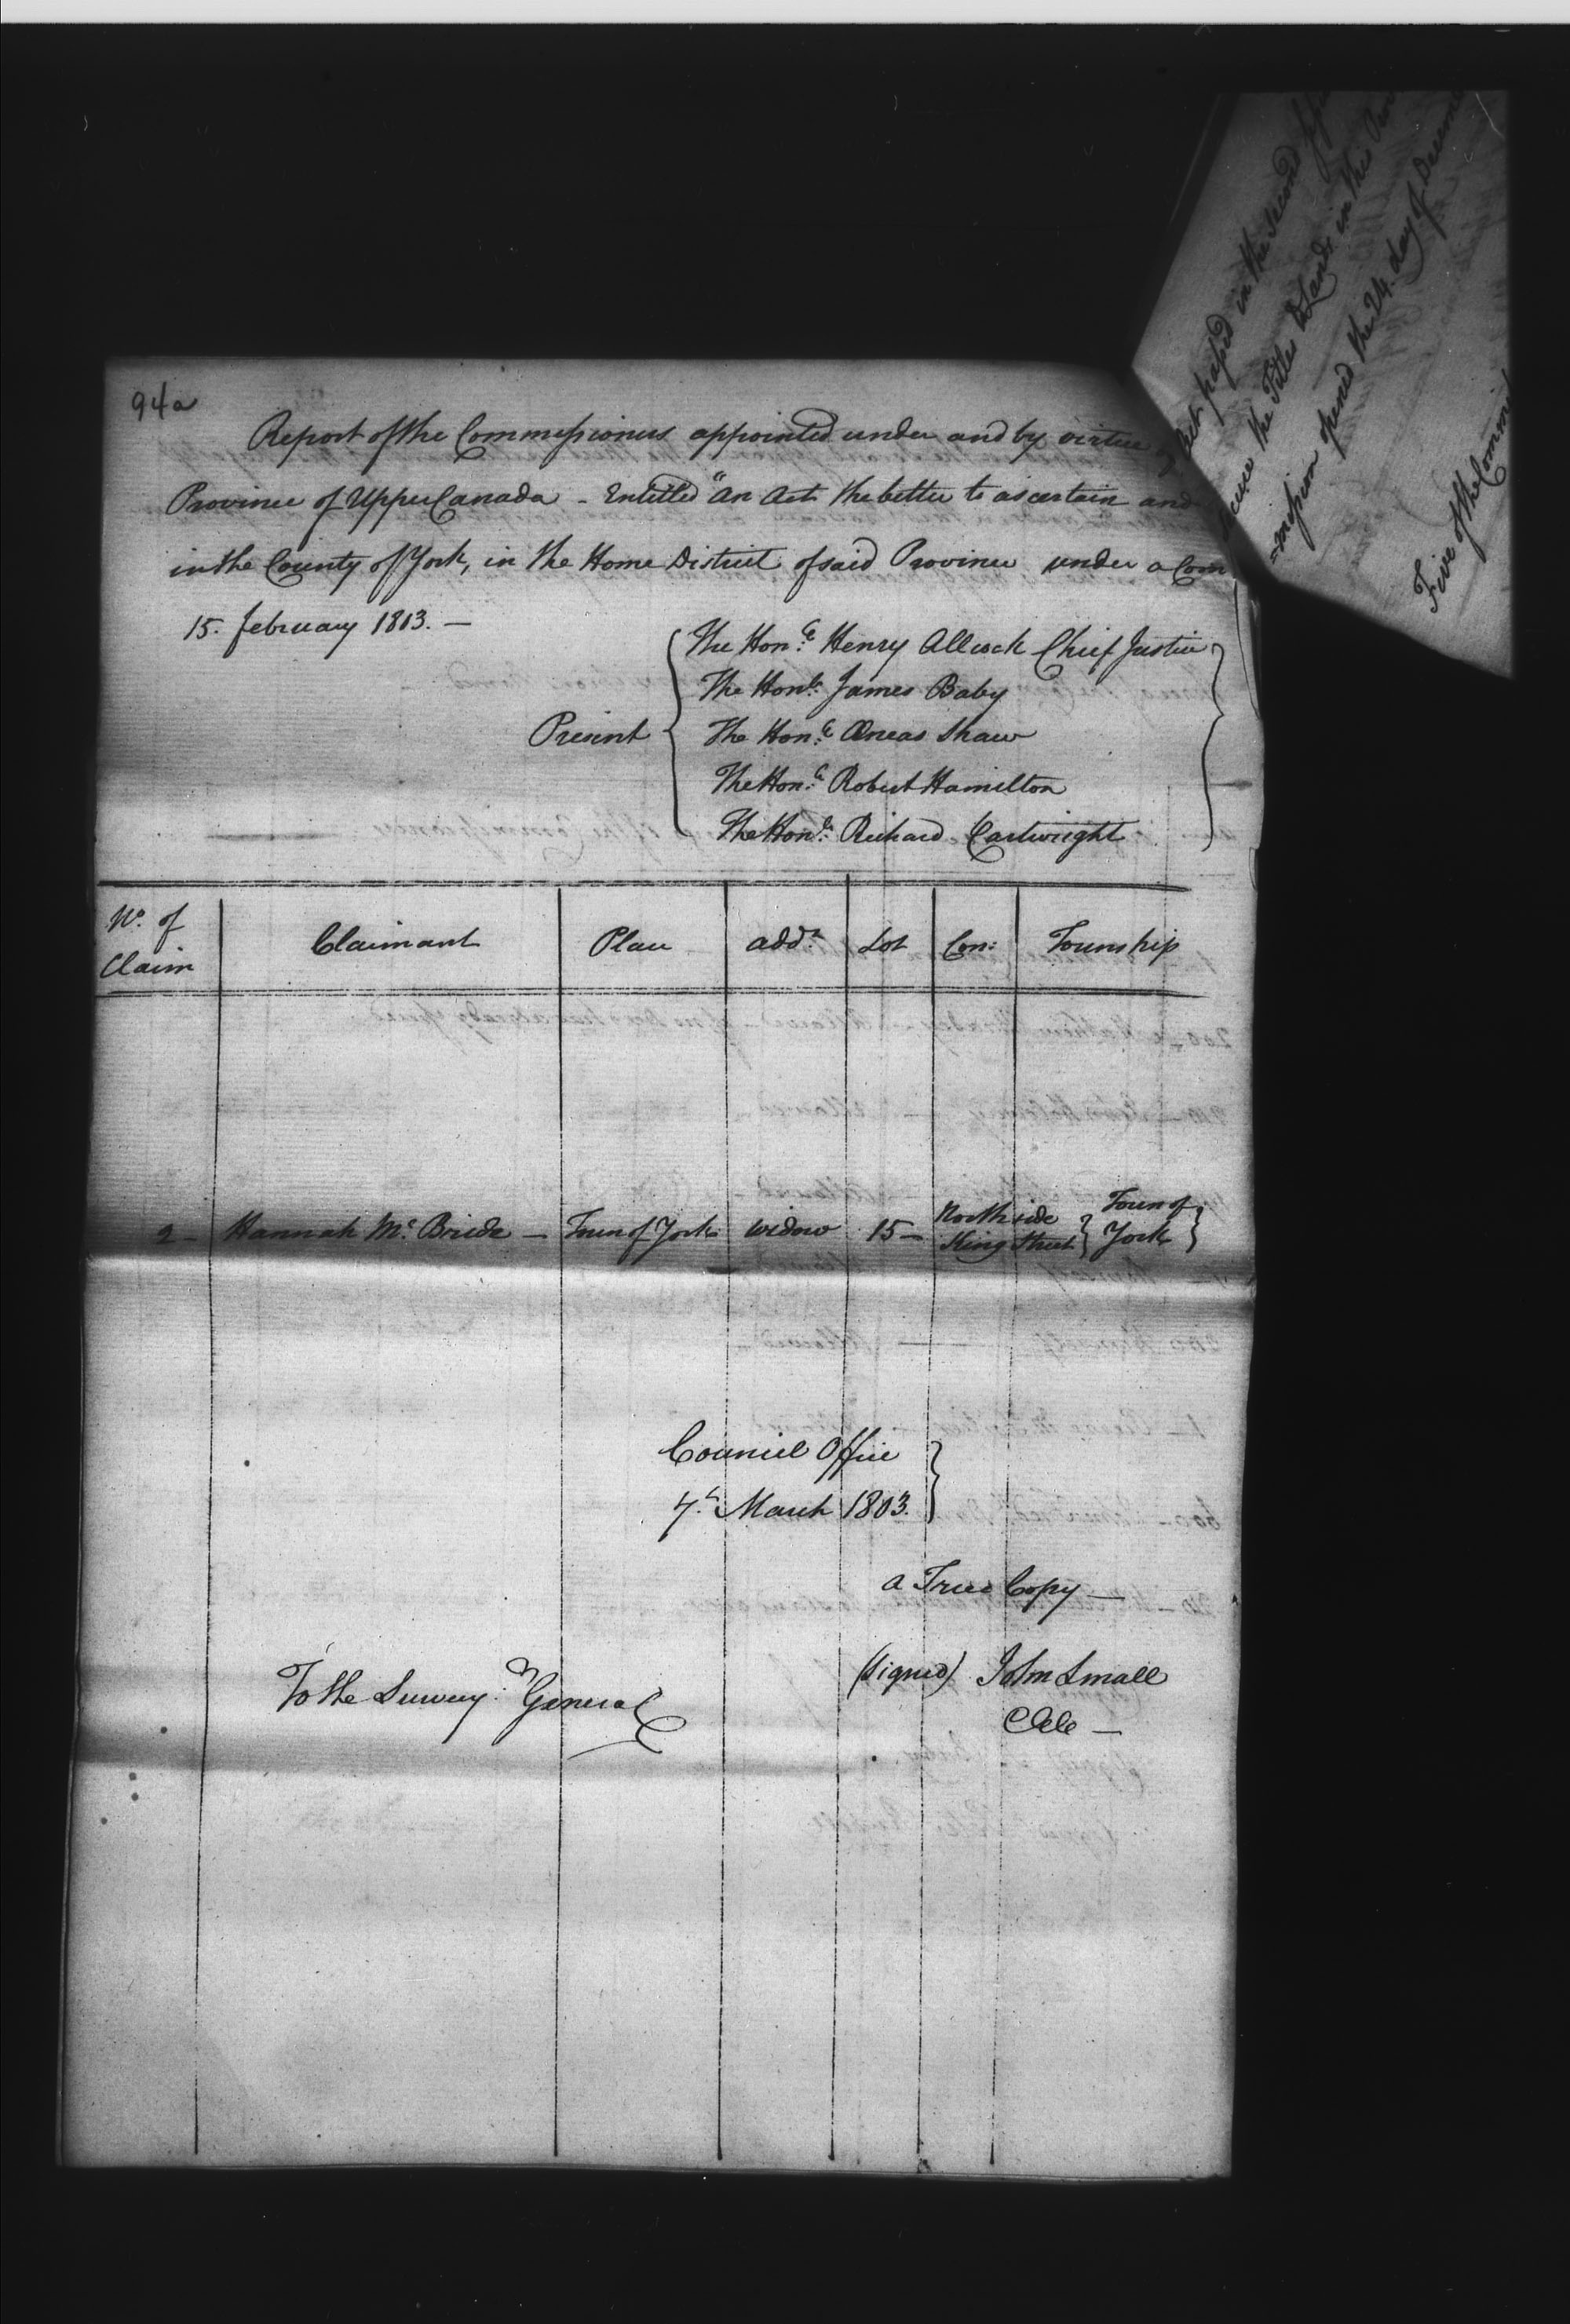 94a
Report of the Commissioners appointed under and by virtue
Province of Upper Canada - Entitled "An Act the better to ascertain and
in the County of York, in the Home District of said Province under a Com
15. february 1803. —
Act passed in the Second
secure the Titles to Lands in the
=mission opened the 24. day of Decem
Five of the Commis
Present
The Hon.e Henry Allcock Chief Justice
The Honle. James Baby
The Hon.e Æneas Shaw
The Hon.e Robert Hamilton
The Honle. Richard Cartwright
No. of Claim | Claimant | Place | addn. | Lot | Con: | Township
2 - Hannah Mc. Bride — Town of York widow 15 — North side King Street } Town of York }
Council Office
7.h March 1803.
a True Copy —
(signed) John Small
To the Survey:r General